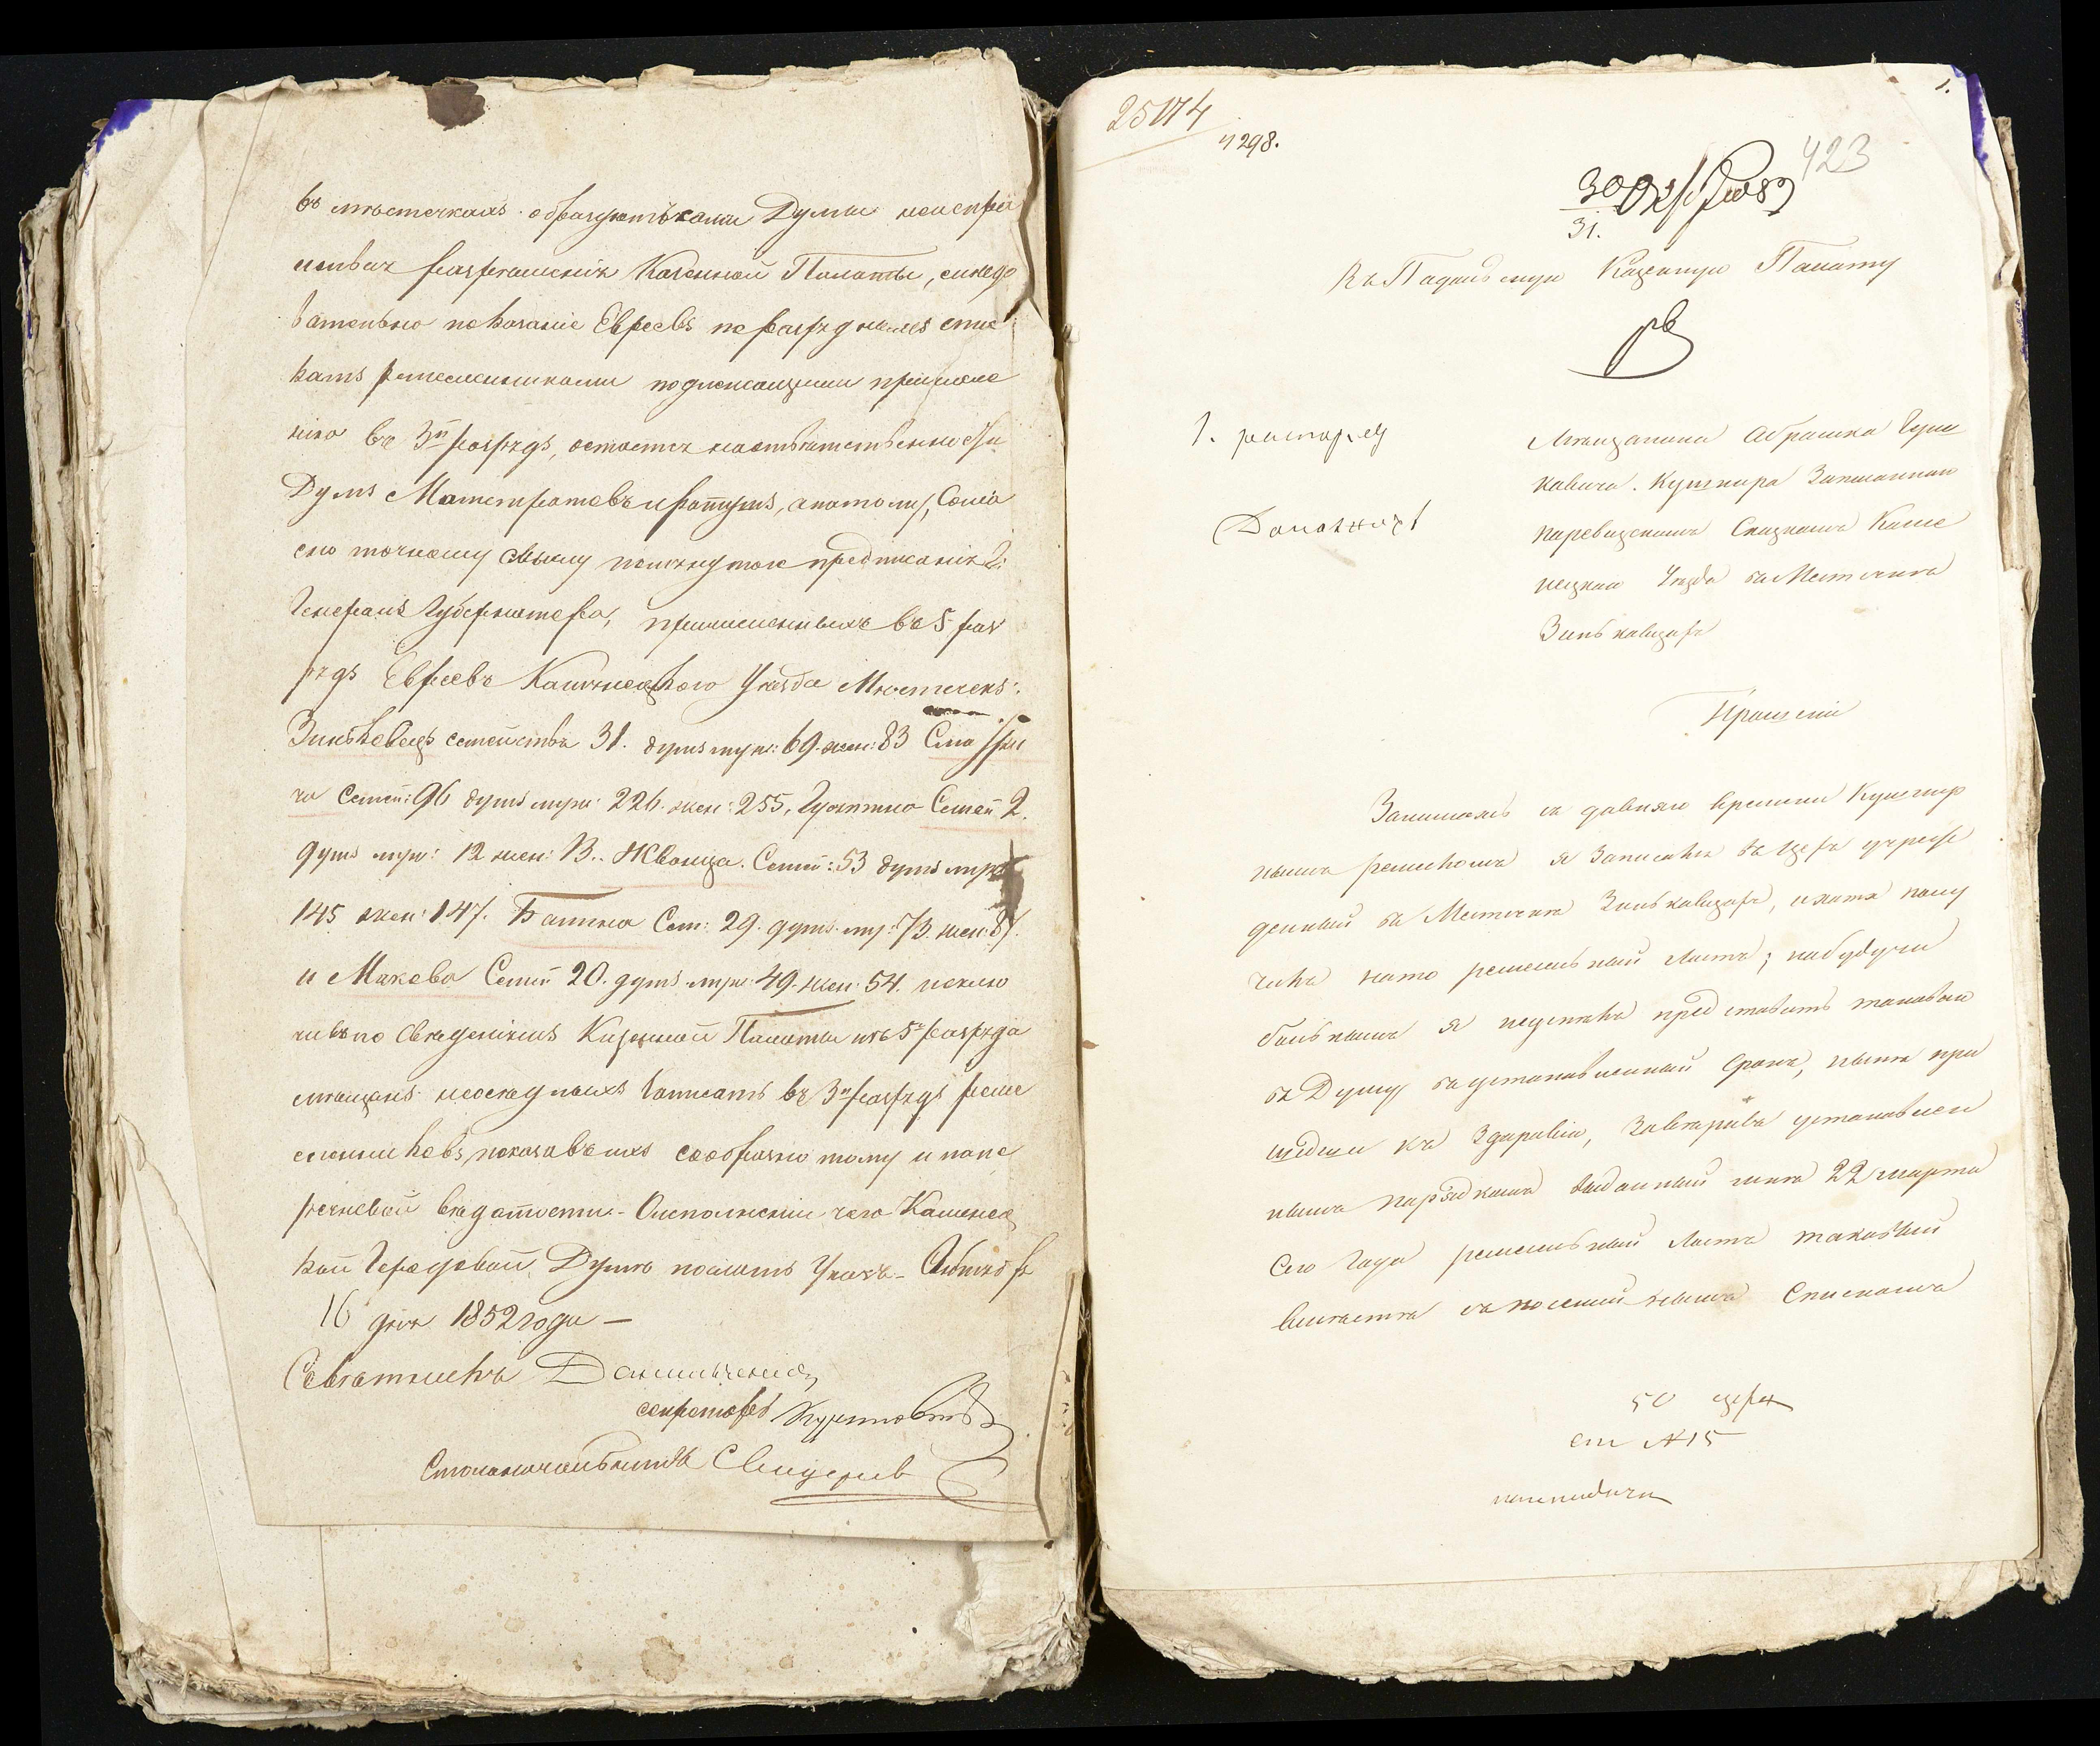 въ мѣстечкахъ образуютъ сами Думы неиспра
шивая разрѣшенія Казенной Палаты, слѣдо
вательно показаніе Евреевъ поразряднымъ спис
камъ ремесленниками подлежащими причисле
нію въ 3й разрядъ, остается наотвѣтственности
Думъ Магистратовъ и Ратушъ, апотому, Согла
сно точному смыслу помянутаго предписанія Г:
Генералъ Губернатора, причисленныхъ въ 5 раз
рядъ Евреевъ Каменецкаго Уѣзда Мѣстечекъ:
Зинькевецъ семействъ 31. душъ муж: 69. жен: 83 Смотри
ча Семей: 96 душъ муж: 226. жен: 255, Гусятина Семей 2.
душъ муж: 12 жен: 13. Жванца. Семей: 53 душъ муж
145 жен: 147. Балина Сем: 29. душъ муж: 73. жен: 87.
и Макова Семей 20. душъ муж: 49. жен: 54. исклю
чивъ по Свѣденіямъ Казенной Палаты изъ 5го разряда
мѣщанъ неосѣдлыхъ записать въ 3й разрядъ реме
сленниковъ, показавъ ихъ сообразно тому и по пе
речневой вѣдомости - О исполненіи чего Каменец
кой Городовой Думѣ послать Указъ - Октября
16 дня 1852 года —
Совѣтникъ
секретарь
Столоначальникъ
25174
4298.
1.
423
30 Октября
31.
Въ Подольскую Казенную Палату
Мѣщанина Абрашка
ковича. Кушнира Записаннаго
поревизскимъ Сказкамъ Каме
нецкаго Уѣзда въ Местечкѣ
Зиньковцахъ
Прошеніе
Занимаясь съ давняго времени Кушнир
нымъ ремесломъ я Записанъ въ Цехъ учреж
денный въ Местечкѣ Зиньковцахъ, и хотя полу
чилъ на то ремесленный листъ; но будучи
больнымъ я неуспѣлъ представить таковаго
въ Думу въ установленный Срокъ, нынѣ при
шедши къ Здоровію,
нымъ порядкомъ выданный мнѣ 22 марта
Сего Года ремесленный листъ таковый
вместѣ съ посемейнымъ Спискомъ
50
ст №15